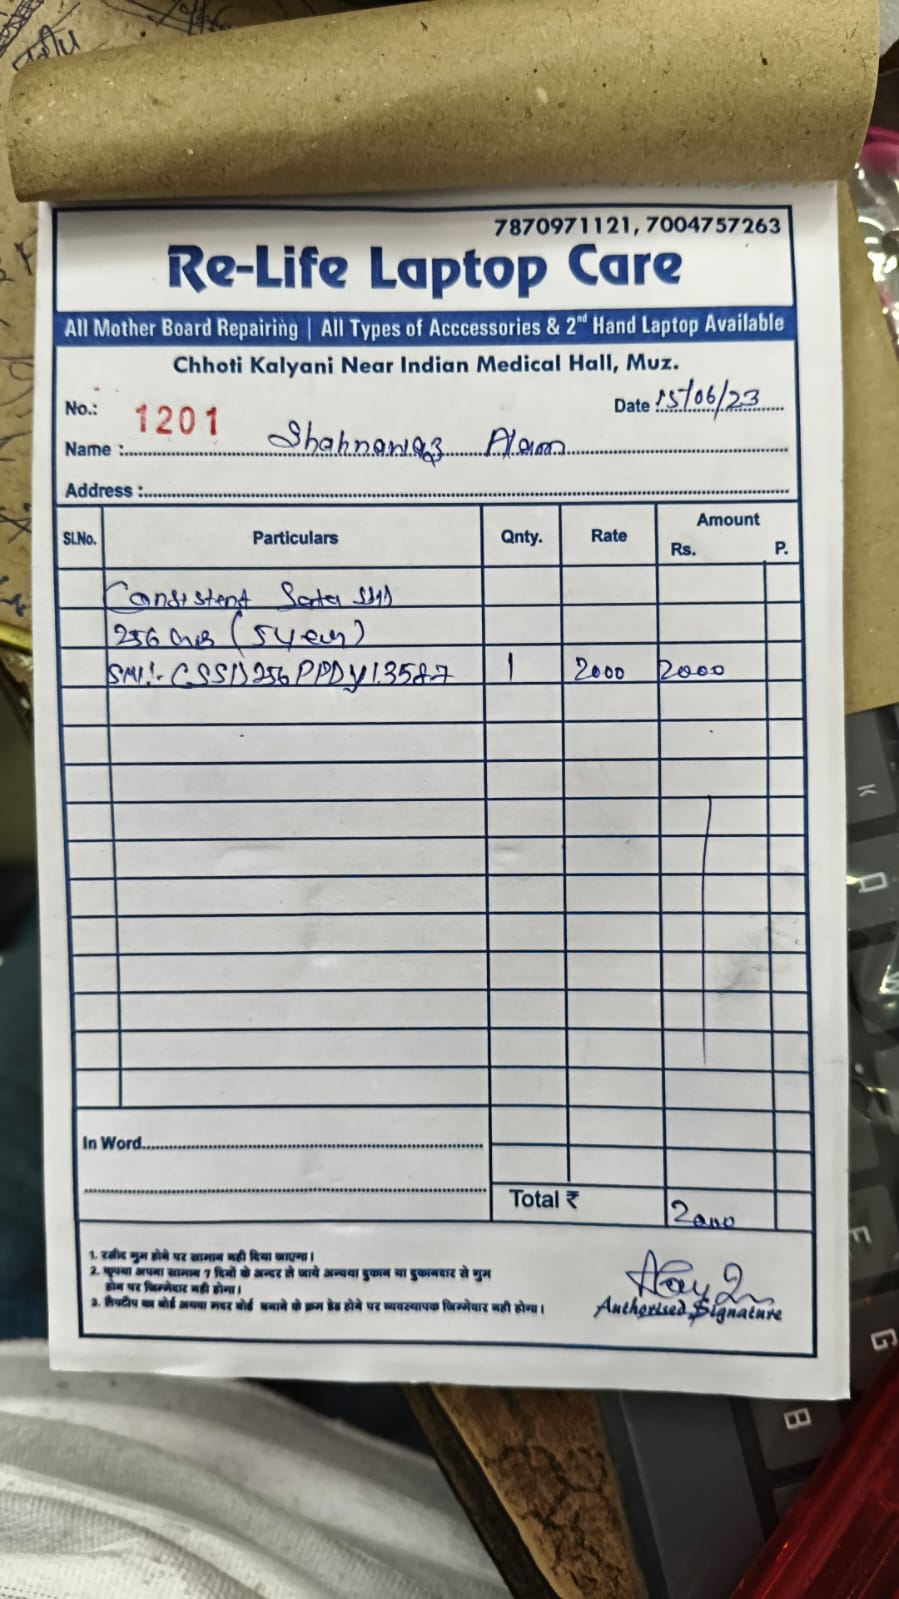 7870971121, 7004757263
Re-Life Laptop Care
All Mother Board Repairing | All Types of Acccessories & 2nd Hand Laptop Available
Chhoti Kalyani Near Indian Medical Hall, Muz.
No.: 1201 Date 15/06/23
Name : Shahnawaz Alam
Address :
Sl.No. Particulars Qnty. Rate Amount
Rs. P.
Consistent Sata SSD
256 GB (5 year)
SN!:- CSSD256PPDY13587 1 2000 2000
In Word
Total ₹ 2000
1. रसीद गुम होने पर सामान नही दिया जाएगा।
2. कृपया अपना सामान 7 दिनों के अन्दर ले जाये अन्यथा दुकान या दुकानदार से गुम
होन पर जिम्मेवार नही होगा।
3. लैपटॉप का बोर्ड अथवा मदर बोर्ड बनाने के क्रम डेड होने पर व्यवस्थापक जिम्मेवार नही होगा।
Authorised Signature
K
D
F
G
B